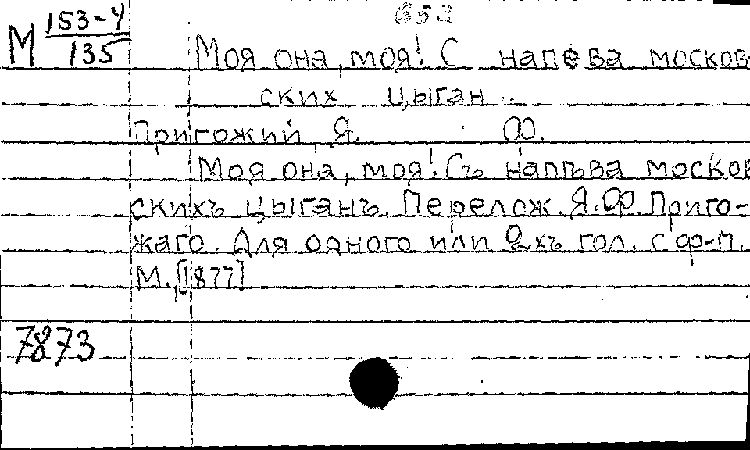 653
М 153-4/135
Моя она, моя! С напева москов-
ских цыган.
Пригожий, Я. Ф.
Моя она, моя! Съ напѣва москов
скихъ цыганъ. Перелож. Я. Ф. Приго-
жаго. Для одного или 2хъ гол. с ф-п.
М., [1877]
7873